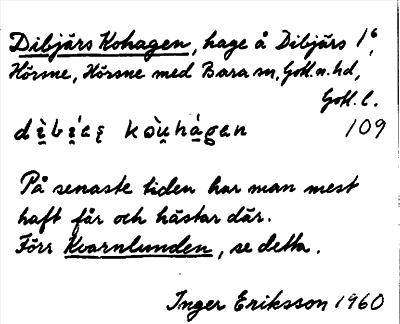 Dibjärs Kohagen, hage å Dibjärs 1⁶,
Hörsne, Hörsne med Bara sn, Gotl. n. hd,
Gotl. l.
kò̤u̯há̤gan 109
På senaste tiden har man mest
haft får och hästar där.
Förr Kvarnlunden, se detta.
Inger Eriksson 1960